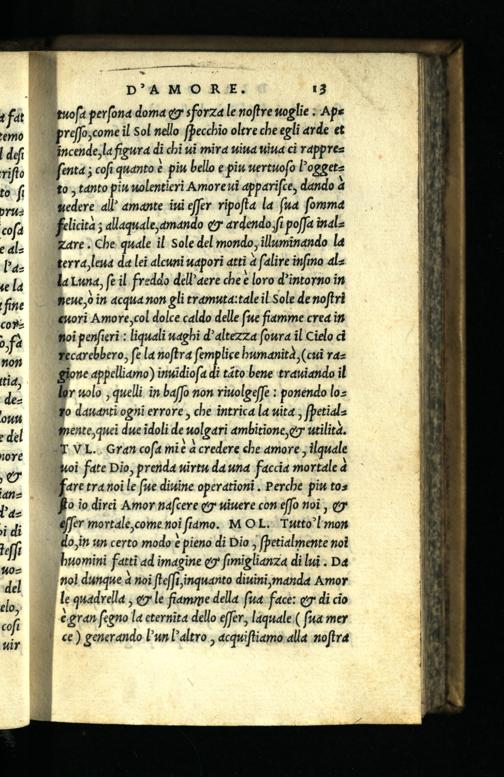 D'AMORE. 13
tuosa persona doma & sforza le nostre voglie. Ap=
presso, come il Sol nello specchio oltre che egli arde et
incende, la figura di chi vi mira viva viva ci rappre=
senta; cosi quanto è piu bello e piu vertuoso l'ogget=
to, tanto piu volentieri Amore vi apparisce, dando à
vedere all'amante ivi esser riposta la sua somma
felicità; allaquale, amando & ardendo, si possa inal=
zare. Che quale il Sole del mondo, illuminando la
terra, leva da lei alcuni vapori atti à salire insino al=
la Luna, se il freddo dell'aere che è loro d'intorno in
neve, ò in acqua non gli tramuta: tale il Sole de nostri
cuori Amore, col dolce caldo delle sue fiamme crea in
noi pensieri: liquali vaghi d'altezza soura il Cielo ci
recarebbero, se la nostra semplice humanità, (cui ra=
gione appelliamo) invidiosa di tãto bene traviando il
lor volo, quelli in basso non rivolgesse: ponendo lo=
ro davanti ogni errore, che intrica la vita, spetial=
mente, quei due idoli de volgari ambitione, & utilità.
TVL. Gran cosa mi è à credere che amore, ilquale
voi fate Dio, prenda virtu da una faccia mortale à
fare tra noi le sue divine operationi. Perche piu to=
sto io direi Amor nascere & vivere con esso noi, &
esser mortale, come noi siamo. MOL. Tutto'l mon
do, in un certo modo è pieno di Dio, spetialmente noi
huomini fatti ad imagine & simiglianza di lui. Da
noi dunque à noi stessi, inquanto divini, manda Amor
le quadrella, & le fiamme della sua face: & di cio
è gran segno la eternita dello esser, laquale (sua mer
ce) generando l'un l'altro, acquistiamo alla nostra